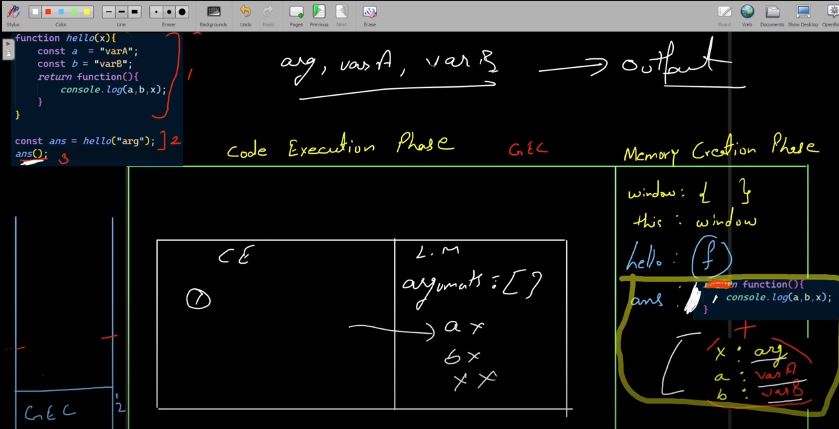 Stylus
Color
Line
Eraser
Backgrounds
Undo
Redo
Pages
Previous
Next
Erase
Board
Web
Documents
Show Desktop
function hello(x){
const a = "varA";
const b = "varB";
return function(){
console.log(a,b,x);
}
}
1
const ans = hello("arg"); 2
ans(); 3
arg, varA, varB → output
Code Execution Phase
GEC
Memory Creation Phase
window: { }
this: window
hello: f
ans:
function(){
console.log(a,b,x);
}
+
x: arg
a: varA
b: varB
CE
L.M
1
arguments: [ ]
a x
b x
x x
GEC
2